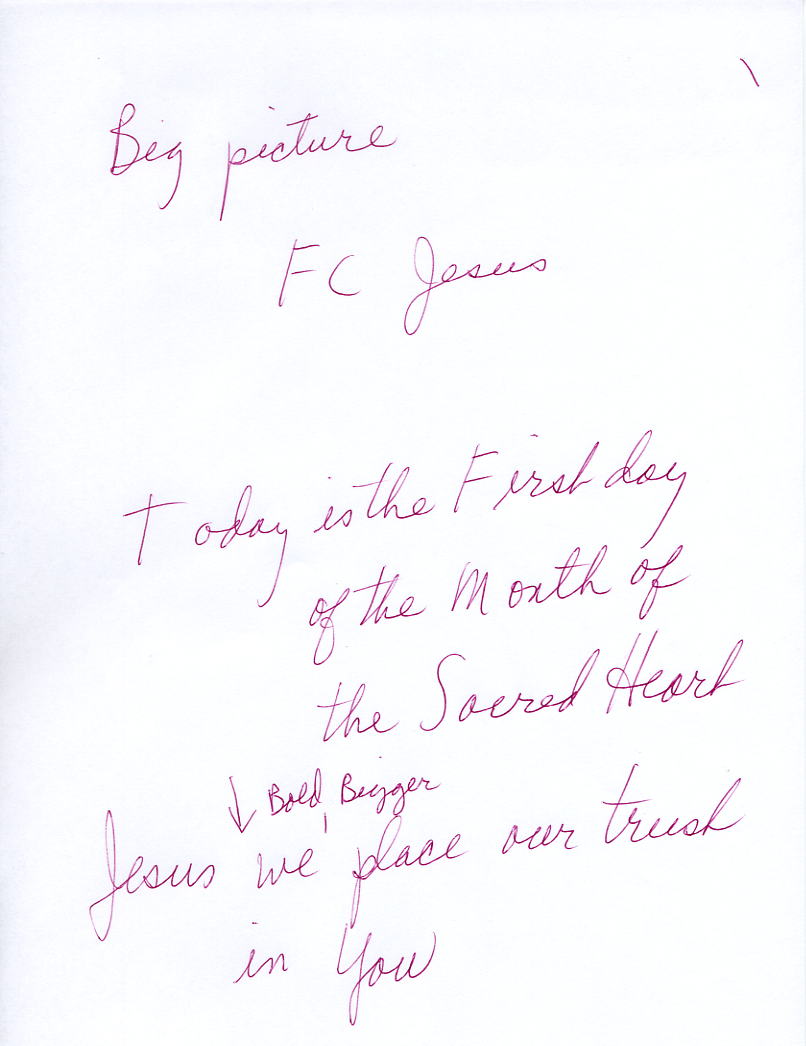 Big picture
FC Jesus
Today is the First day
of the Month of
the Sacred Heart
↓ Bold, Bigger
Jesus we place our trust
in You